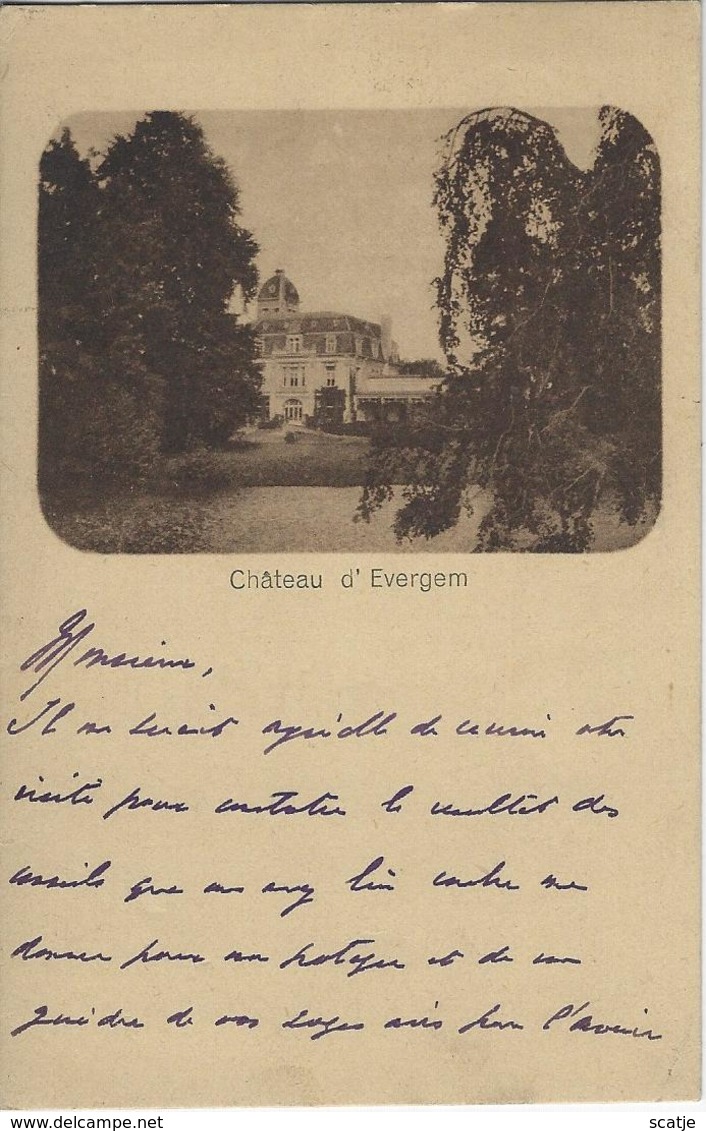 Château d' Evergem
Monsieur,
Il me serait agréable de recevoir votre
visite pour constater le résultat des
conseils que vous avez bien voulu me
donner pour mon potager et de me
guider de vos sages avis pour l'avenir
scatje